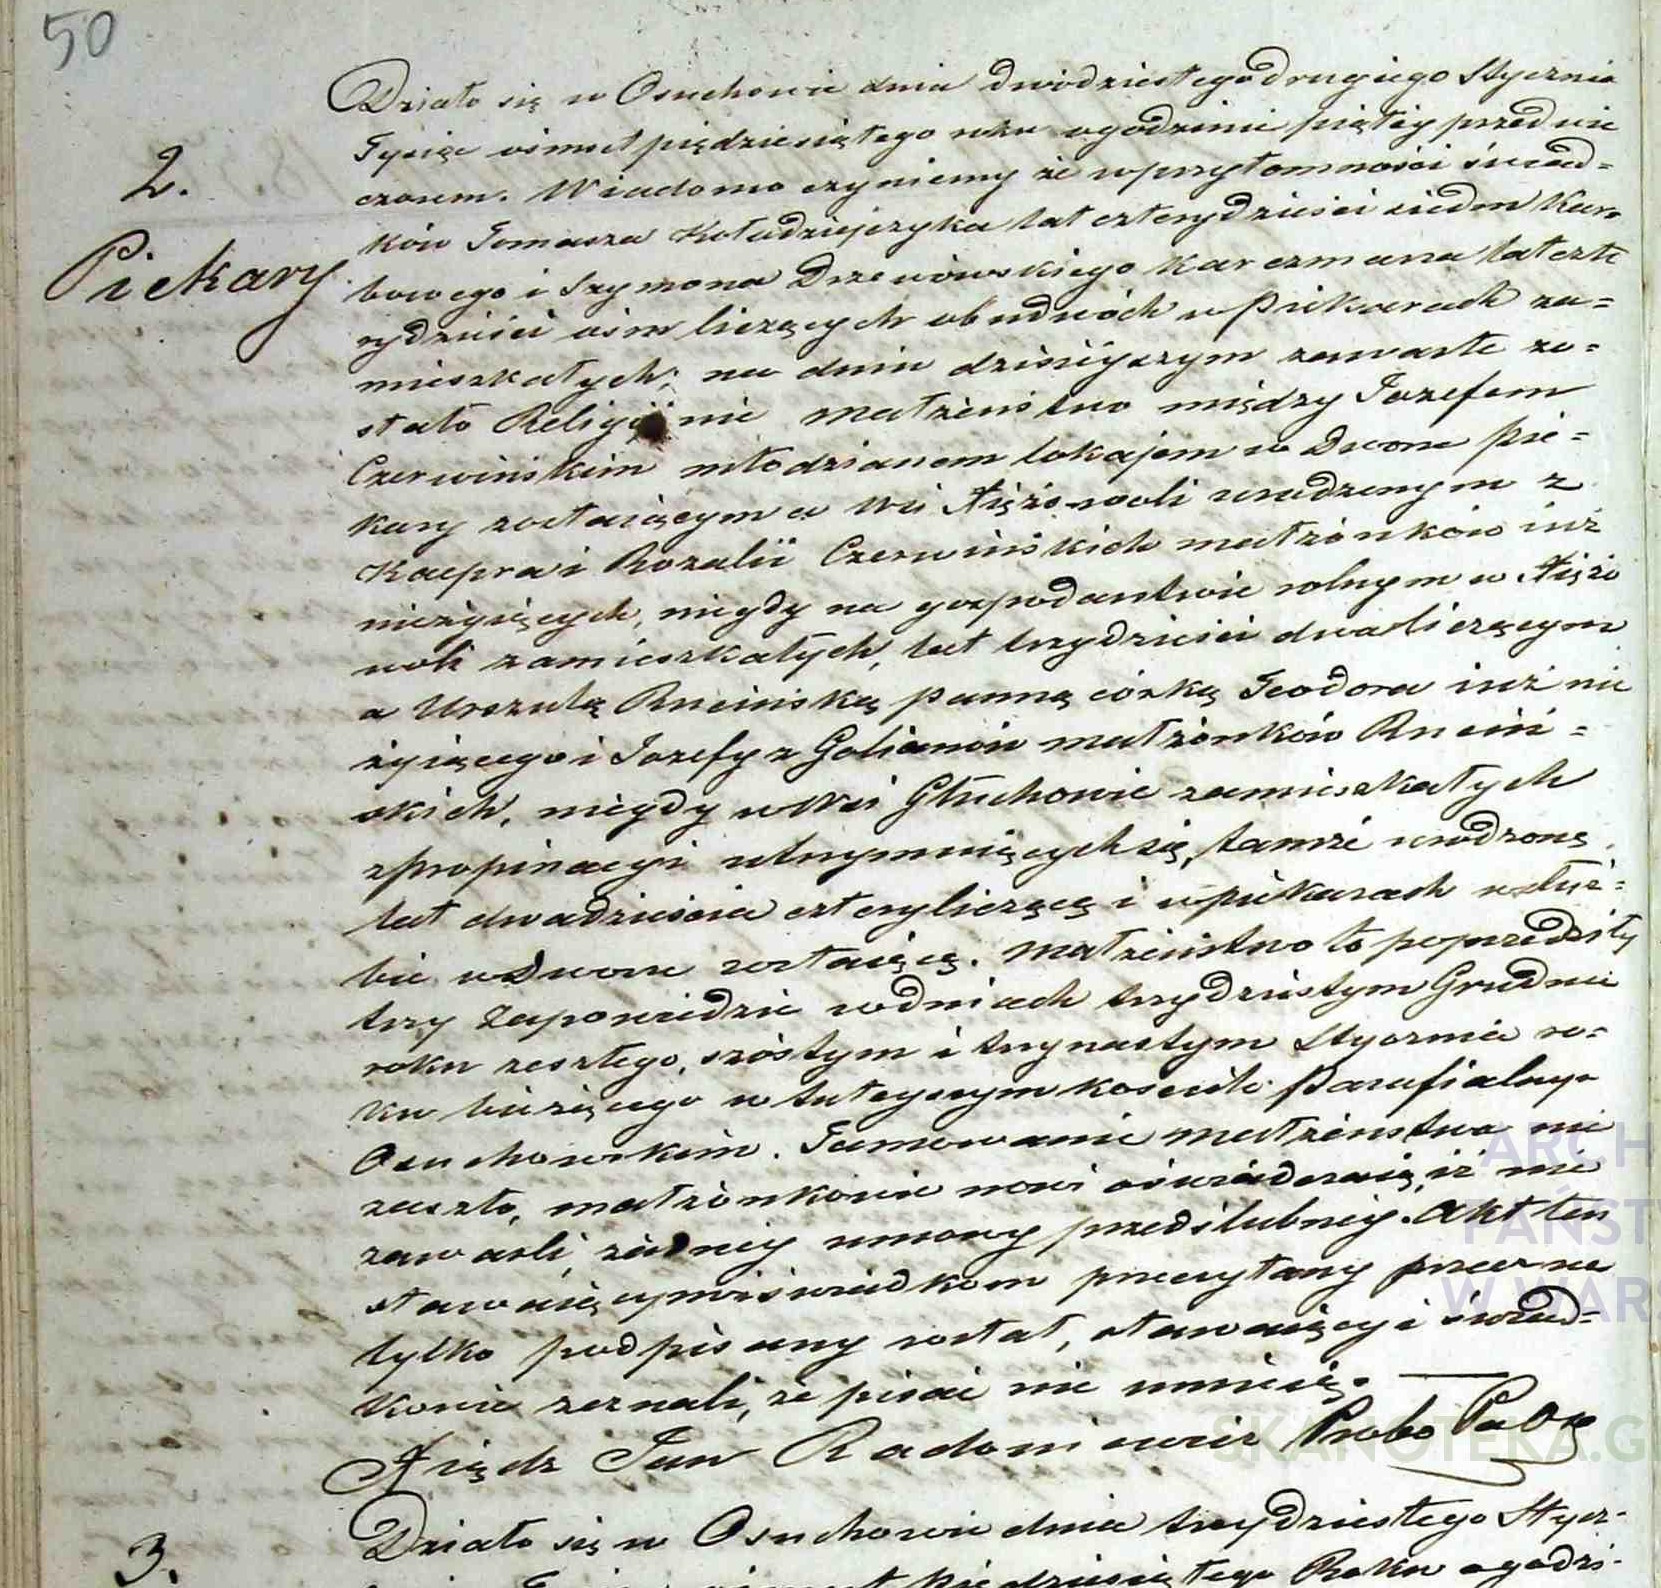 50
2.
Piekary
Działo się w Osuchowie dnia dwódziestego drugiego Stycznia
Tysiąc ośmset piędziesiątego roku o godzinie piątéy przed wie
czorem. Wiadomo czyniemy że w przytomności świad=
ków Tomasza Kołodziejczyka lat czterydzieści siedm Kar
bowego i Szymona Drzewiowskiego Karczmarza lat czte
rydzieści ośm liczących obudwóch w Piekarach za=
mieszkałych; na dniu dzisiéyszym zawarte zo=
stało Religijnie małżeństwo między Jozefem
Czerwińskim młodzianem lokajem w Dworze Pie=
kary zostaiącym a we wsi Xiężowoli urodzonym z
Kacpra i Rozalii Czerwińskich małżonków iuż
nieżyiących, niegdy na gospodarstwie rolnym w Xiężo
woli zamieszkałych, lat trzydzieści dwa liczącym
a Urszulą Rucińską panną córką Teodora iuż nie
żyiącego i Jozefy z Golianów małżonkówRuciń=
skich, niegdy w Wsi Głuchowie zamieszkałych
z propinacyi utrzymuiących się, tamże urodzoną
lat dwadzieścia cztery liczącą i w Piekarach w służ=
bie w Dworze zostaiącą. Małżeństwo to poprzedziły
trzy Zapowiedzie w dniach trzydziestym Grudnia
roku zeszłego, szóstym i trzynastym Stycznia ro=
ku bieżącego w tuteyszym kościele Parafialnym
Osuchowskim. Tamowanie małżeństwa nie
zaszło, małżonkowie nowi oświadczaią, iż nie
zawarli, żadnéy umowy przedślubnéy. Akt ten
stawaiącym i świadkom przeczytany przez nas
tylko podpisany został, stawaiący i świad=
kowie zeznali, że pisać nie umieią.
Xiądz Jan Radoniewicz Probo Pa Os
3.
Działo się w Osuchowie dnia trzydziestego Stycz-
ośmset Piędziesiątego Roku o godzi-
ARCH
PAŃST
W WAR
SKANOTEKA.G